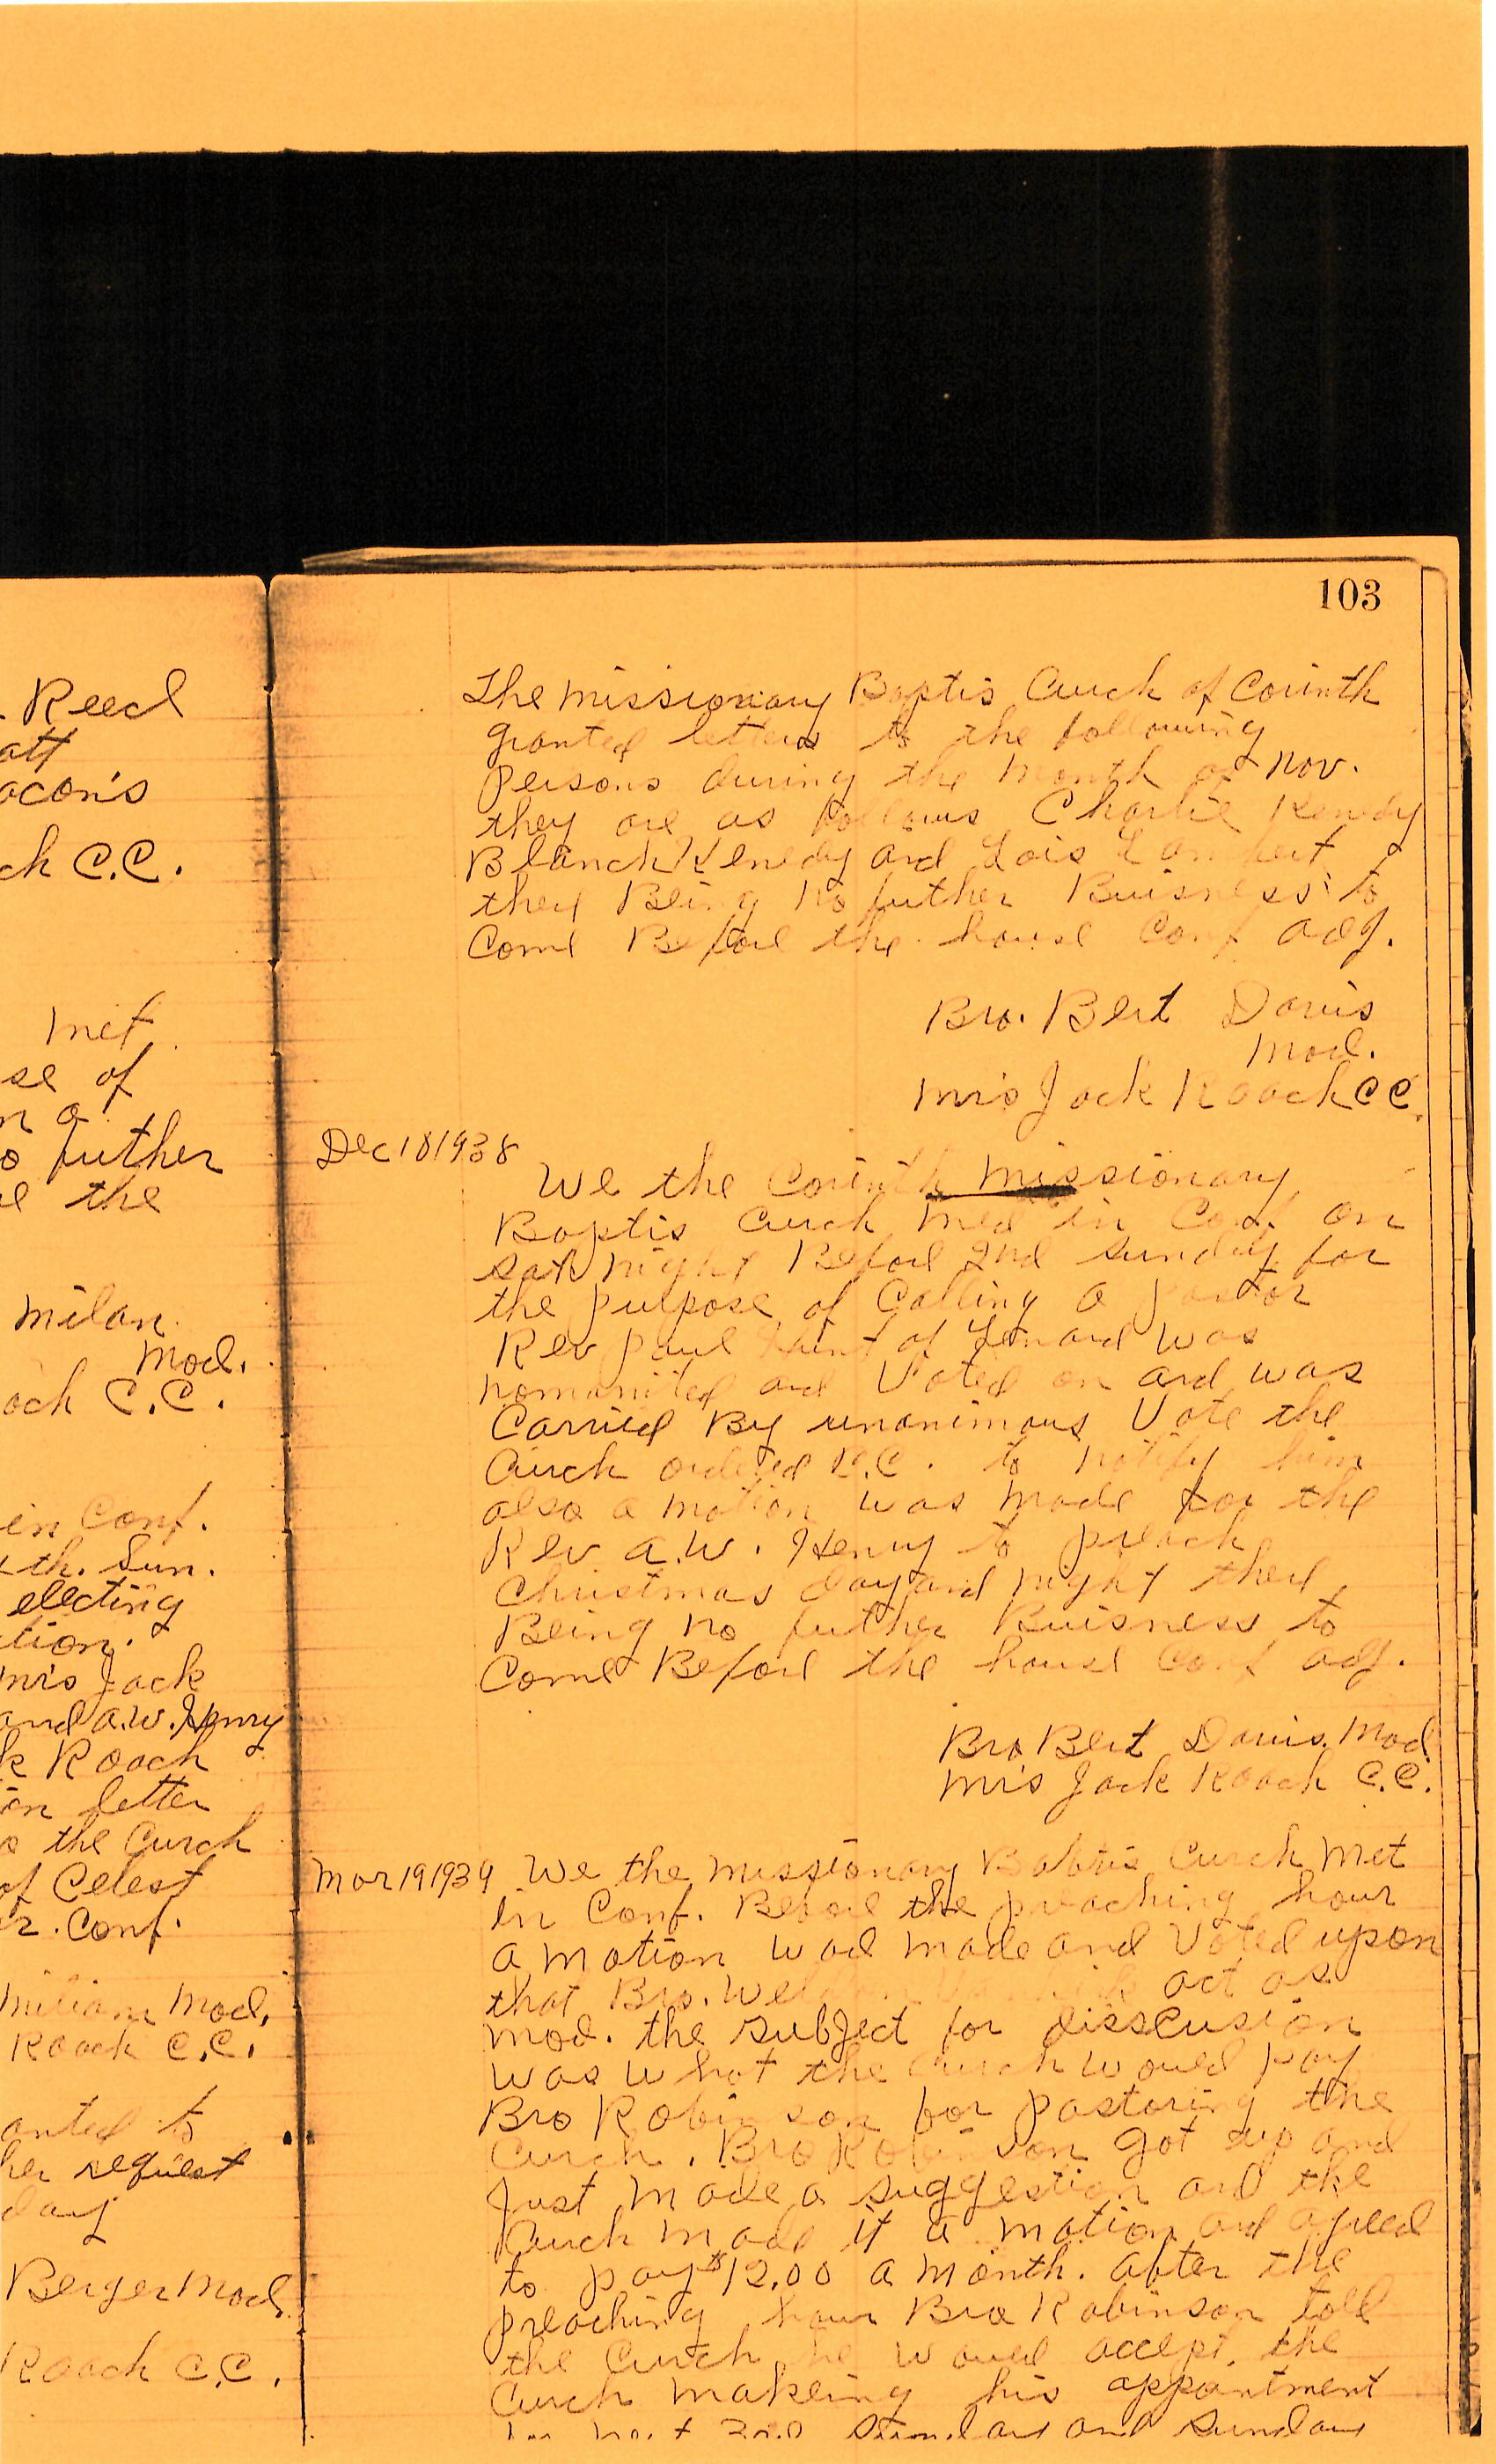 . Reed
att
acon's
ch C.C.
met
se of
n a
o futher
re the
milan
mod.
ach C.C.
in Conf.
th. Sun.
electing
tion.
mrs Jack
and a.w. Henry
k Roach
on letter
o the Curch
of Celest
r. Conf.
miliam Mod.
Roach C.C.
anted to
her request
day
Berger Mod.
Roach C.C.
103
The missionary Baptis Curch of Corinth
granted letters to the following
persons during the month of nov.
they are as follows Charlie Kenedy
Blanch Kenedy and Lois Lambert
there Being no futher Buisness to
Come Before the house Conf adj.
Bro. Bert Davis
mod.
mrs Jack Roach CC.
Dec 18 1938
We the Corinth missionary
Baptis Curch med in Conf. on
sat night Before 2nd sunday for
the purpose of Calling a pastor
Rev paul of was
nomanited and Voted on and was
Carried By unanimous Vote the
Curch ordered C.C. to notify him
also a motion was made for the
Rev a.w. Henry to preach
Christmas day and night there
Being no futher Buisness to
Come Before the house Conf adj.
Bro Bert Davis. Mod.
mrs Jack Roach C.C.
mar 19 1939 We the missionary Babtis Curch met
in Conf. Before the preaching hour
a motion wad made and Voted upon
that Bro. act as
mod. the subject for disscusion
was what the Curch would pay
Bro Robinson for pastoring the
Curch. Bro Robinson got up and
Just made a suggestion and the
Curch made it a motion and agreed
to pay $12.00 a month. after the
preaching hour Bro Robinson tole
the Curch he would accept. the
Curch makeing his appontment
sunday and sunday